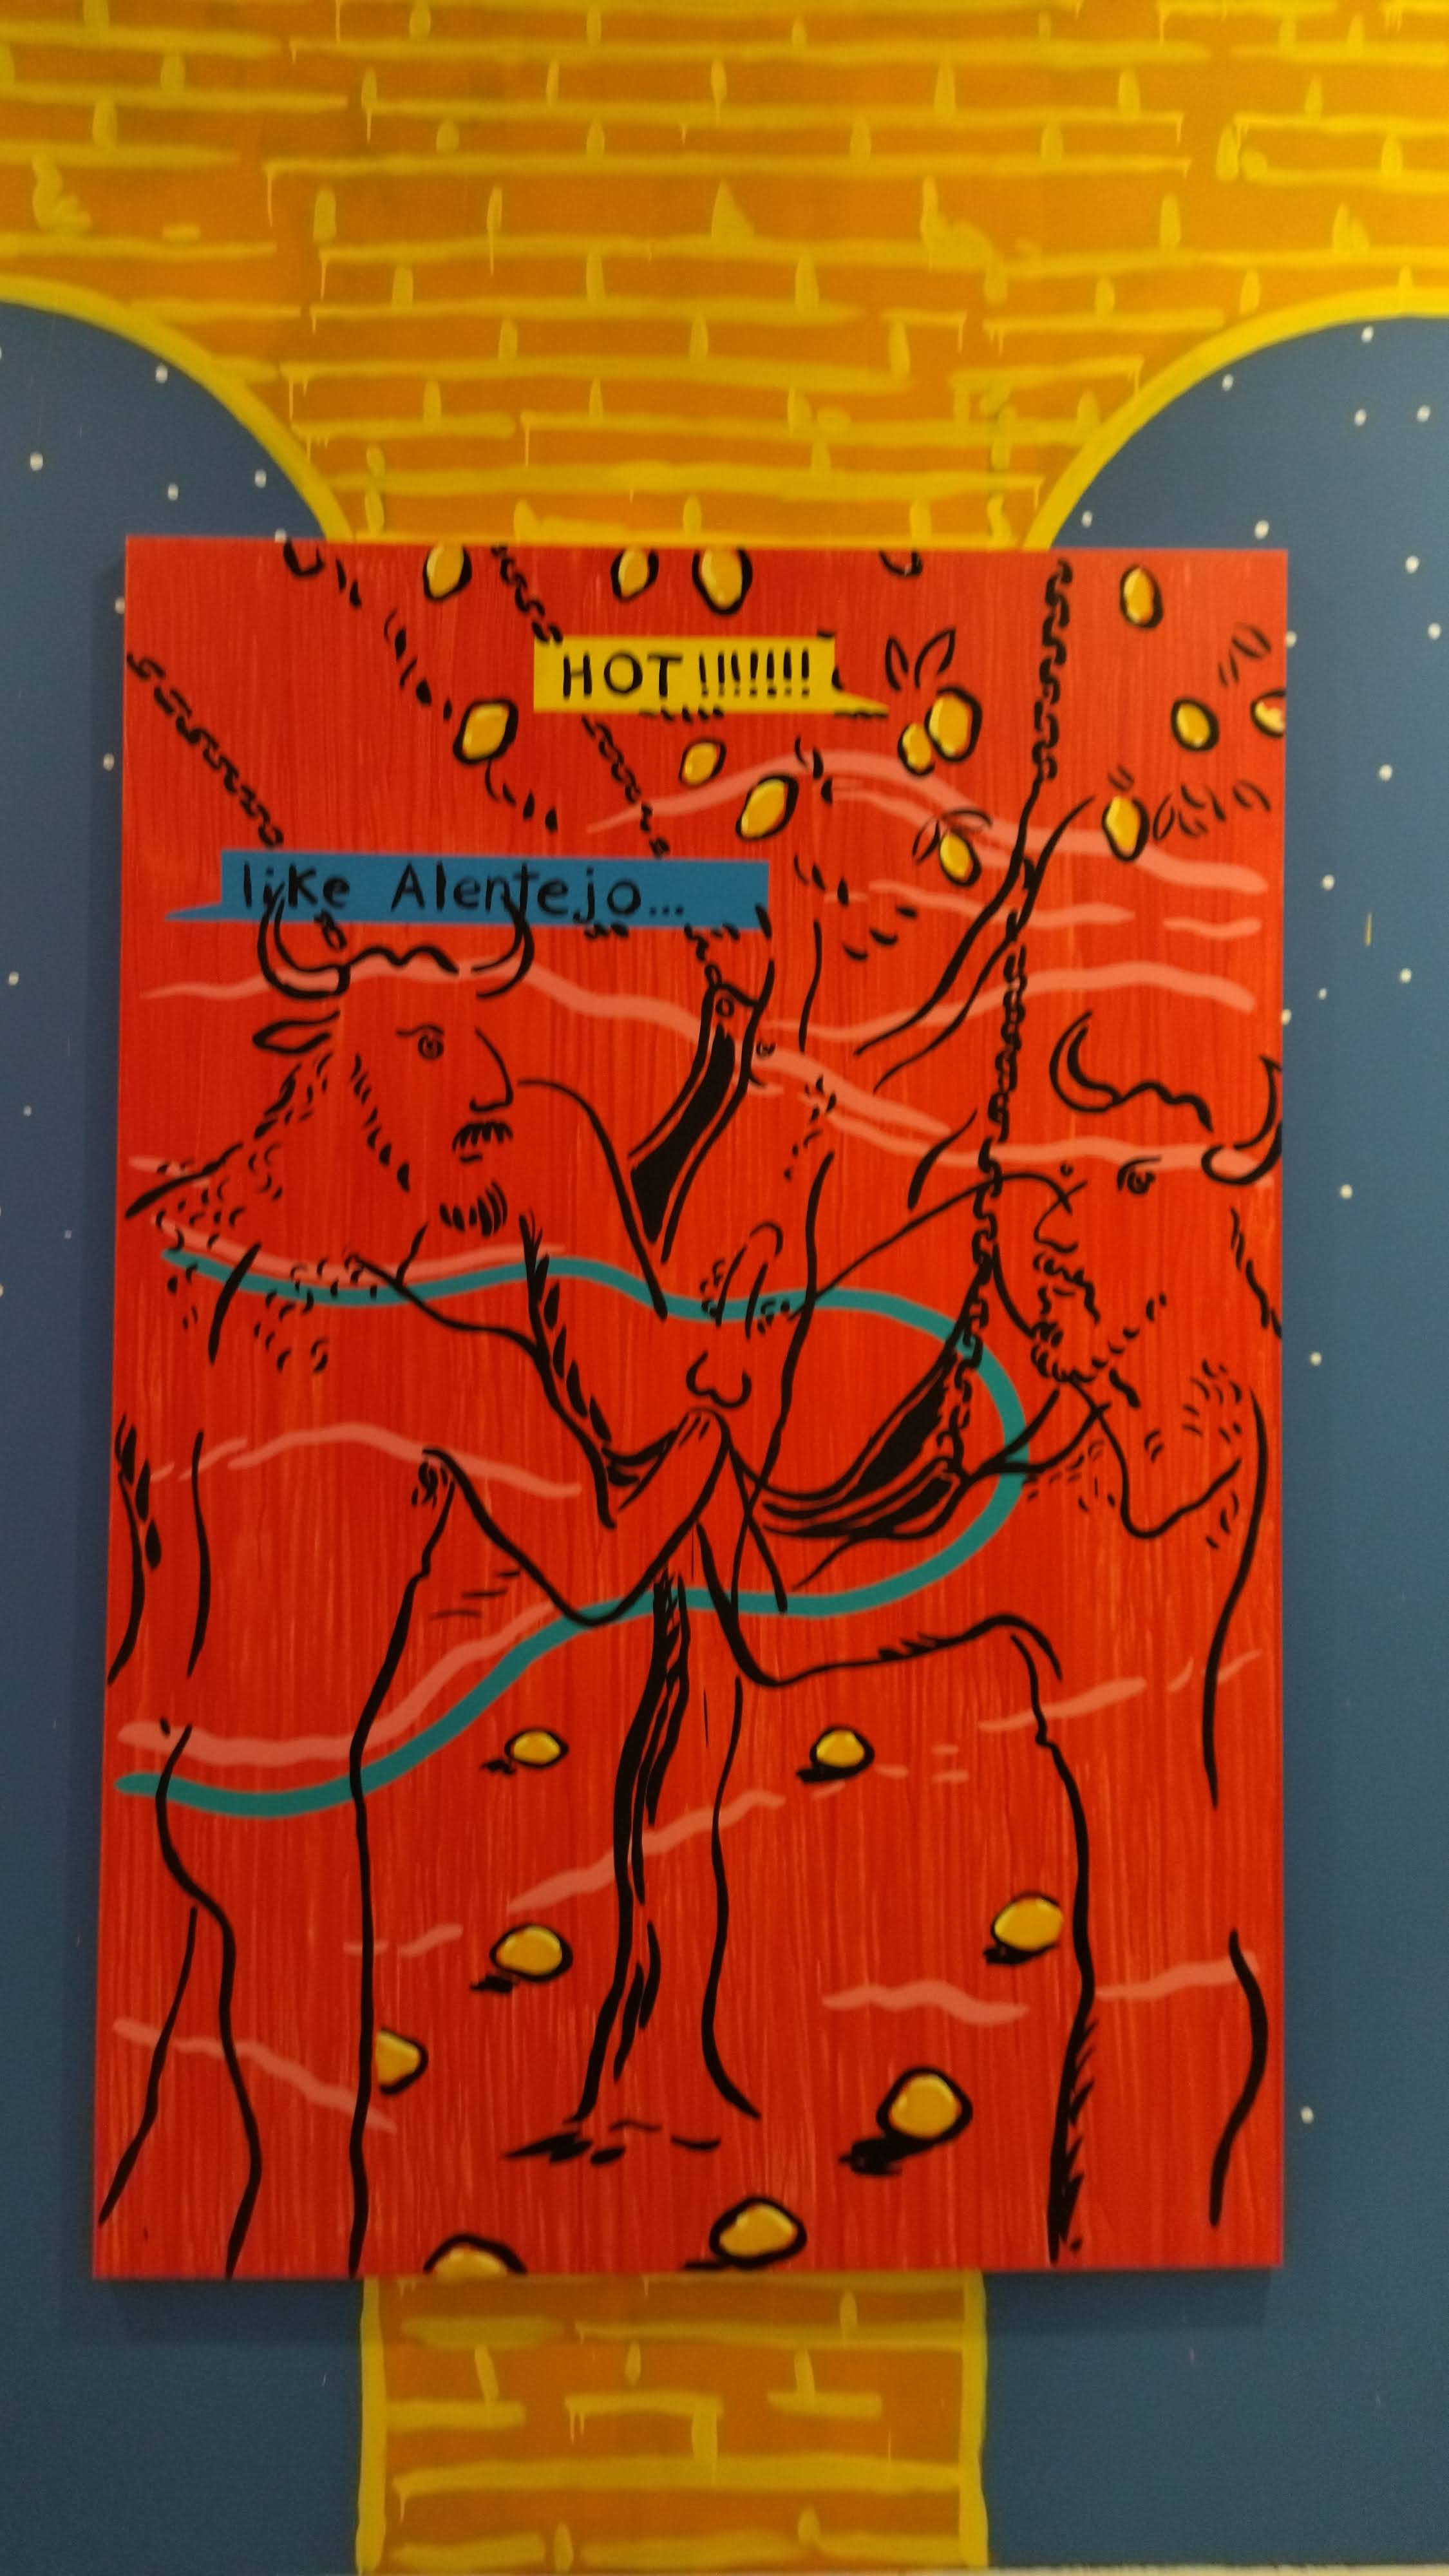 HOT!!!!!!!
like Alentejo...